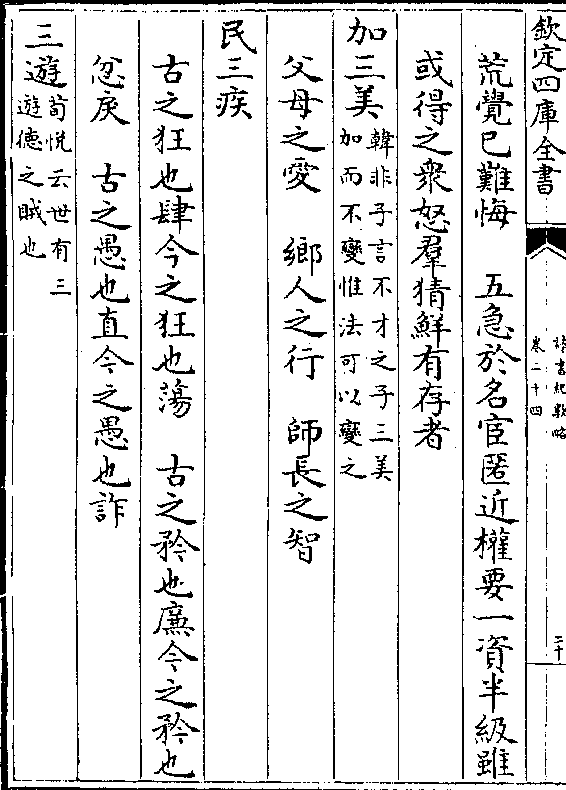 欽定四庫全書
諸書紀數略
卷二十四
二十
荒覺已難悔　五急於名宦匿近權要一資半級雖
或得之衆怒羣猜鮮有存者
加三美韓非子言不才之子三美
加而不變惟法可以變之
父母之愛　鄉人之行　師長之智
民三疾
古之狂也肆今之狂也蕩　古之矜也廉今之矜也
忿戾　古之愚也直今之愚也詐
三遊荀悅云世有三
遊德之賊也